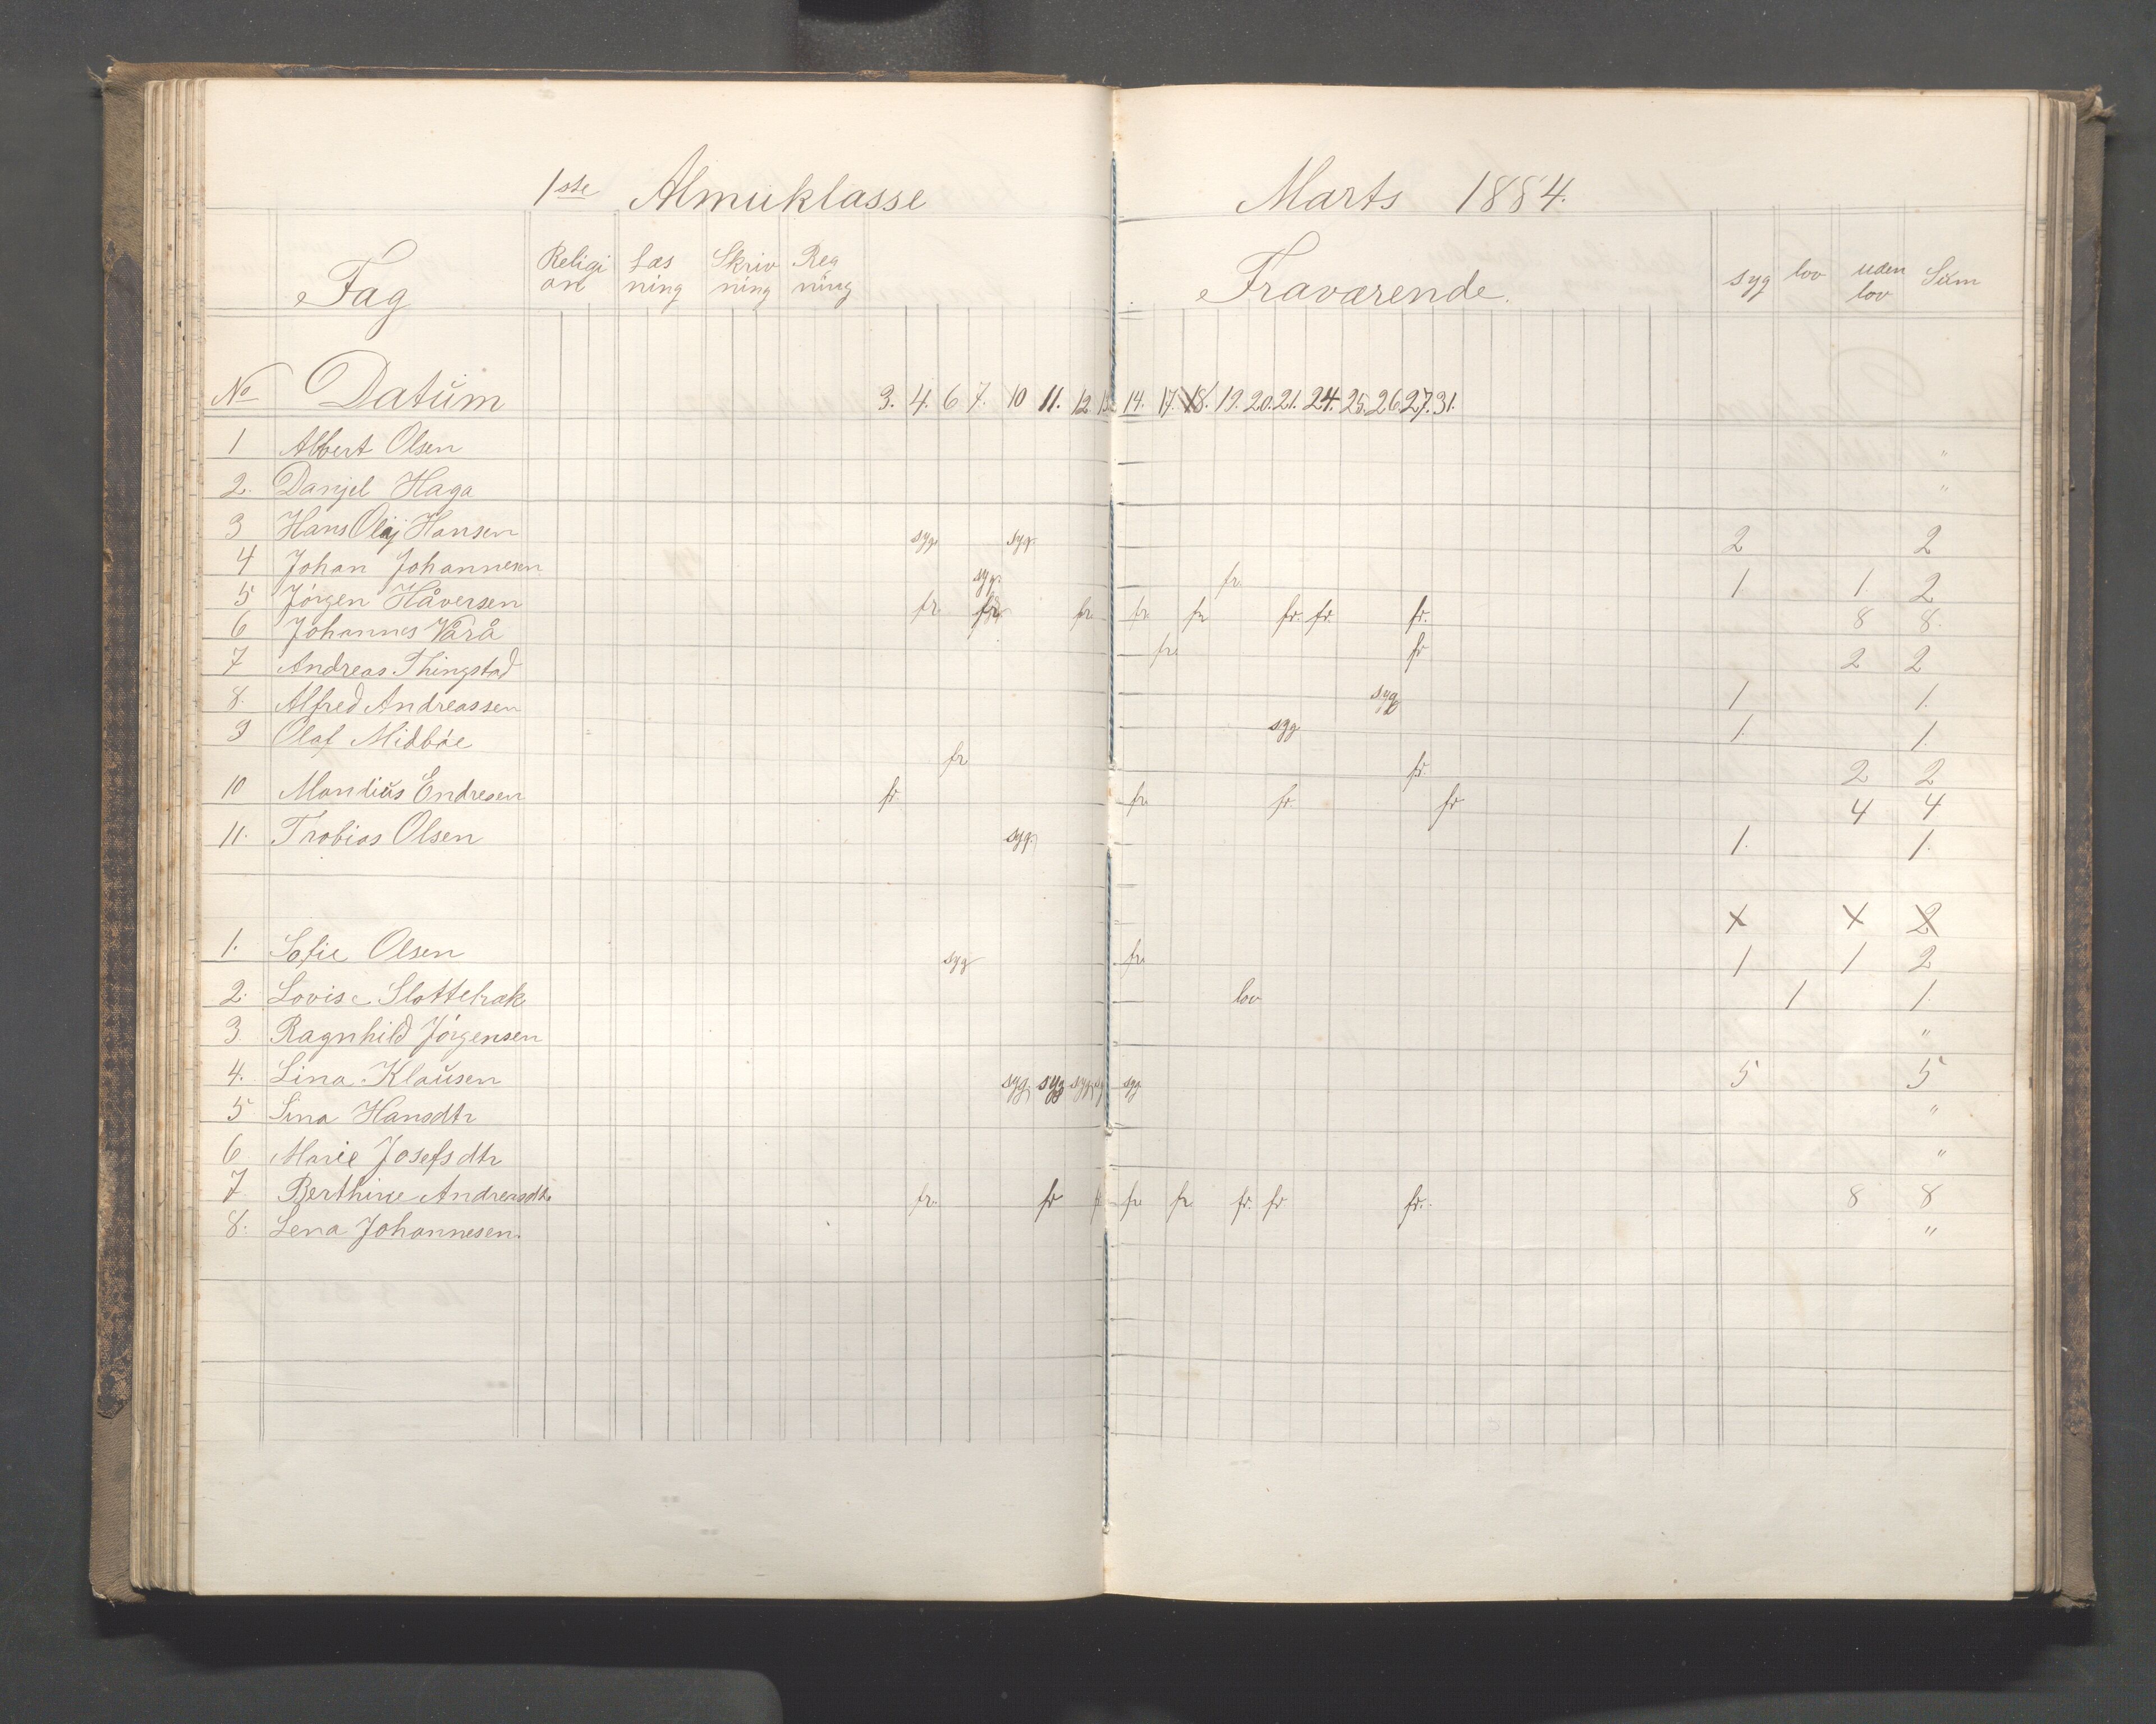 1ste Almuklasse Marts 1884.
Fag Religi on Læs ning Skriv ning Reg ning Fraværende. syg lov uden lov Sum
No Datum 3. 4. 6 7. 10 11. 12 13 14. 17. 18. 19. 20. 21. 24. 25. 26. 27. 31.
1 Albert Olsen "
2. Danjel Haga "
3 Hans Olaj Hansen syg. syg. 2 2
4 Johan Johannesen syg. fr. 1 1 2
5 Jörgen Håversen fr. fr. fr. fr. fr fr. fr. fr. 8 8.
6 Johannes Vårå fr. fr 2 2
7 Andreas Thingstad syg 1 1.
8. Alfred Andreassen syg 1. 1.
9 Olaf Midböe fr fr. 2 2
10 Mandius Endresen fr. fr. fr. fr 4 4
11. Trobias Olsen syg. 1. 1.
2
1. Sofie Olsen syg fr. 1 1 2
2. Lovise lov 1 1.
3. Ragnhild Jörgensen "
4. Lina Klausen syg. syg syg. sy syg 5 5
5 Sina Hansdtr "
6 Marie Josefsdtr "
7 Berthine Andreasdtr fr. fr f fr fr. fr. fr fr. 8 8
8. Lena Johannesen. "